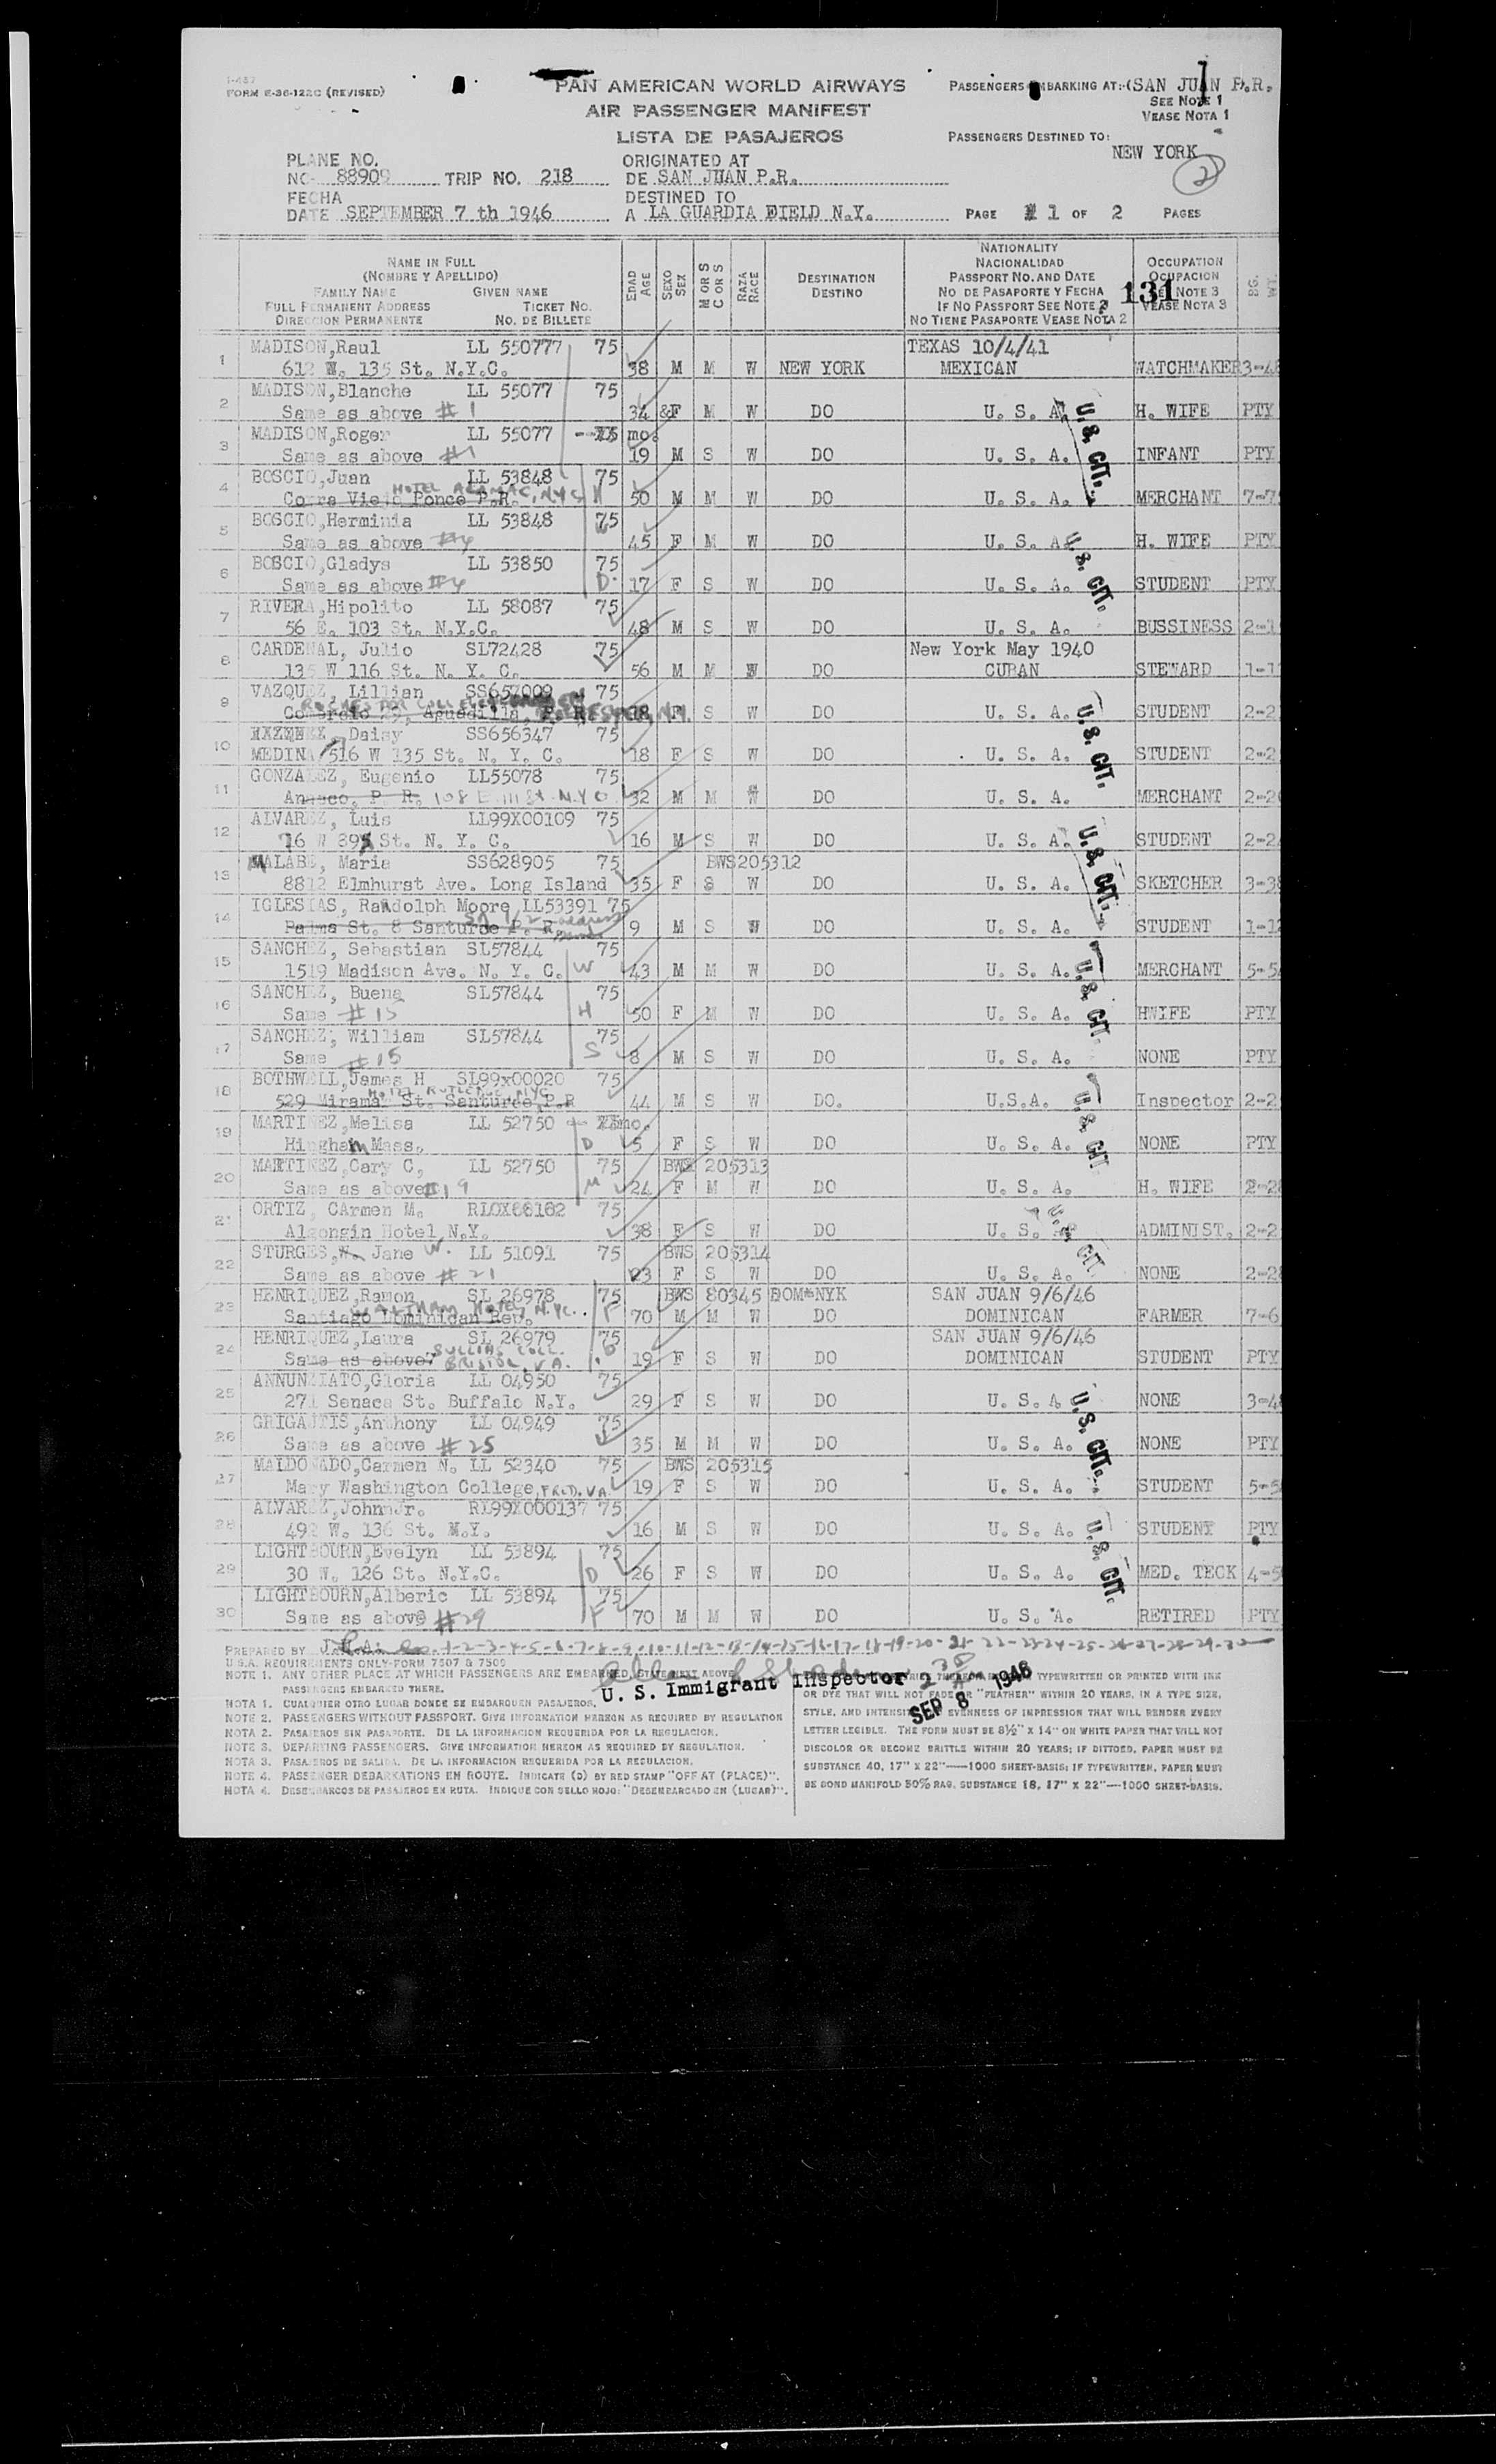 I-487
FORM E-36-122C (REVISED)
PAN AMERICAN WORLD AIRWAYS
AIR PASSENGER MANIFEST
LISTA DE PASAJEROS
PASSENGERS EMBARKING AT: (SAN JUAN P.R.
SEE NOTE 1
VEASE NOTA 1
PASSENGERS DESTINED TO:
NEW YORK
2
PLANE NO.
NO- 88909 TRIP NO. 218
ORIGINATED AT
DE SAN JUAN P.R.
FECHA
DATE SEPTEMBER 7 th 1946
DESTINED TO
A LA GUARDIA FIELD N.Y.
PAGE 1 OF 2 PAGES
NAME IN FULL
(NOMBRE Y APELLIDO)
FAMILY NAME GIVEN NAME
FULL PERMANENT ADDRESS TICKET NO.
DIRECCION PERMANENTE NO. DE BILLETE
EDAD AGE
SEXO SEX
M OR S
C OR S
RAZA RACE
DESTINATION
DESTINO
NATIONALITY
NACIONALIDAD
PASSPORT NO. AND DATE
NO. DE PASAPORTE Y FECHA
IF NO PASSPORT SEE NOTE 2
NO TIENE PASAPORTE VEASE NOTA 2
OCCUPATION
OCUPACION
SEE NOTE 3
VEASE NOTA 3
131
1 MADISON,Raul LL 550777 75 TEXAS 10/4/41
612 W. 135 St. N.Y.C. 38 M M W NEW YORK MEXICAN WATCHMAKER 3-48
2 MADISON,Blanche LL 55077 75
Same as above #1 34 &F M W DO U. S. A. H. WIFE PTY
3 MADISON,Roger LL 55077 75 mo.
Same as above #1 19 M S W DO U. S. A. INFANT PTY
U. S. CIT.
4 BOSCIO,Juan LL 53848 75
HOTEL ALAMAC, NYC H
Corra Viejo Ponce P.R. 50 M M W DO U. S. A. MERCHANT 7-7
5 BOSCIO,Herminia LL 53848 75
Same as above #4 45 F M W DO U. S. A. H. WIFE PTY
6 BOSCIO,Gladys LL 53850 75
Same as above #4 D. 17 F S W DO U. S. A. STUDENT PTY
U. S. CIT.
7 RIVERA,Hipolito LL 58087 75
56 E. 103 St. N.Y.C. 48 M S W DO U. S. A. BUSSINESS 2-1
8 CARDENAL, Julio SL72428 75 New York May 1940
135 W 116 St. N. Y. C. 56 M M W DO CUBAN STEWARD 1-1
9 VAZQUEZ, Lillian SS657009 75
Comercio 29, Aguadilla, P. R. 18 F S W DO U. S. A. STUDENT 2-2
10 Daisy SS656347 75
MEDINA 516 W 135 St. N. Y. C. 18 F S W DO U. S. A. STUDENT 2-2
U. S. CIT.
11 GONZALEZ, Eugenio LL55078 75
Anasco, P. R. 108 E 111 St. N.Y C 32 M M W DO U. S. A. MERCHANT 2-2
12 ALVAREZ, Luis LL99X00109 75
St. N. Y. C. 16 M S W DO U. S. A. STUDENT 2-2
13 MALABE, Maria SS628905 75 BWS205312
8812 Elmhurst Ave. Long Island 35 F S W DO U. S. A. SKETCHER 3-3
U. S. CIT.
14 IGLESIAS, Randolph Moore LL53391 75
Palma St. 8 Santurce P. R. 9 M S W DO U. S. A. STUDENT 1-1
15 SANCHEZ, Sebastian SL57844 75
1519 Madison Ave. N. Y. C. W 43 M M W DO U. S. A. MERCHANT 5-5
16 SANCHEZ, Buena SL57844 75
Same #15 H 50 F M W DO U. S. A. HWIFE PTY
U. S. CIT.
17 SANCHEZ, William SL57844 75
Same #15 S 8 M S W DO U. S. A. NONE PTY
18 BOTHWELL,James H SL99x00020 75
529 Miramar St. Santurce,P.R 44 M S W DO. U.S.A. Inspector 2-2
19 MARTINEZ,Melisa LL 52750 mo.
Hingham Mass. D 5 F S W DO U. S. A. NONE PTY
U. S. CIT
20 MARTINEZ,Cary C, LL 52750 75 BWS 205313
Same as above #19 M 24 F M W DO U. S. A. H. WIFE 2-2
21 ORTIZ, CArmen M. RLOX66162 75
Algongin Hotel N.Y. 38 F S W DO U. S. ADMINIST. 2-2
22 STURGES, Jane W. LL 51091 75 BWS 205314
Same as above #21 23 F S W DO U. S. A. NONE 2-2
U. S. CIT
23 HENRIQUEZ,Ramon SL 26978 75 BWS 80345 DOM-NYK SAN JUAN 9/6/46
Santiago Dominican Rep. F 70 M M W DO DOMINICAN FARMER 7-6
24 HENRIQUEZ,Laura SL 26979 75 SAN JUAN 9/6/46
SULLINS COLL.
Same as above BRISTOL, VA. D 19 F S W DO DOMINICAN STUDENT PTY
25 ANNUNZIATO,Gloria LL 04950 75
271 Senaca St. Buffalo N.Y. 29 F S W DO U. S. A NONE 3-4
26 GRIGAITIS,Anthony LL 04949 75
Same as above #25 35 M M W DO U. S. A. NONE PTY
U. S. CIT.
27 MALDONADO,Carmen N. LL 52340 75 BWS 205315
Mary Washington College, FRED. VA 19 F S W DO U. S. A. STUDENT 5-5
28 ALVAREZ,JohnJr. RL99X000137 75
492 W. 136 St. N.Y. 16 M S W DO U. S. A. STUDENT PTY
29 LIGHTBOURN,Evelyn LL 53894 75
30 W. 126 St. N.Y.C. D 26 F S W DO U. S. A. MED. TECK 4-5
U. S. CIT.
30 LIGHTBOURN,Alberic LL 53894 75
Same as above #29 F 70 M M W DO U. S. A. RETIRED PTY
PREPARED BY 1-2-3-4-5-6-7-8-9-10-11-12-13-14-15-16-17-18-19-20-21-22-23-24-25-26-27-28-29-30
U.S.A. REQUIREMENTS ONLY-FORM 7507 & 7509
NOTE 1. ANY OTHER PLACE AT WHICH PASSENGERS ARE EMBARKED, STATE NEXT ABOVE
PASSENGERS EMBARKED THERE.
NOTA 1. CUALQUIER OTRO LUGAR DONDE SE EMBARQUEN PASAJEROS.
NOTE 2. PASSENGERS WITHOUT PASSPORT. GIVE INFORMATION HEREON AS REQUIRED BY REGULATION
NOTA 2. PASAJEROS SIN PASAPORTE. DE LA INFORMACION REQUERIDA POR LA REGULACION.
NOTE 3. DEPARTING PASSENGERS. GIVE INFORMATION HEREON AS REQUIRED BY REGULATION.
NOTA 3. PASAJEROS DE SALIDA. DE LA INFORMACION REQUERIDA POR LA REGULACION.
NOTE 4. PASSENGER DEBARKATIONS EN ROUTE. INDICATE (D) BY RED STAMP "OFF AT (PLACE)".
NOTA 4. DESEMBARCOS DE PASAJEROS EN RUTA. INDIQUE CON SELLO ROJO: "DESEMBARCADO EN (LUGAR)".
U. S. Immigrant Inspector
SEP 8 1946
TYPEWRITTEN OR PRINTED WITH INK
OR DYE THAT WILL NOT FADE OR "FEATHER" WITHIN 20 YEARS, IN A TYPE SIZE,
STYLE, AND INTENSITY EVENNESS OF IMPRESSION THAT WILL RENDER EVERY
LETTER LEGIBLE. THE FORM MUST BE 8½" X 14" ON WHITE PAPER THAT WILL NOT
DISCOLOR OR BECOME BRITTLE WITHIN 20 YEARS; IF DITTOED, PAPER MUST BE
SUBSTANCE 40, 17" X 22"—1000 SHEET-BASIS; IF TYPEWRITTEN, PAPER MUST
BE BOND MANIFOLD 50% RAG, SUBSTANCE 18, 17" X 22"—1000 SHEET-BASIS.